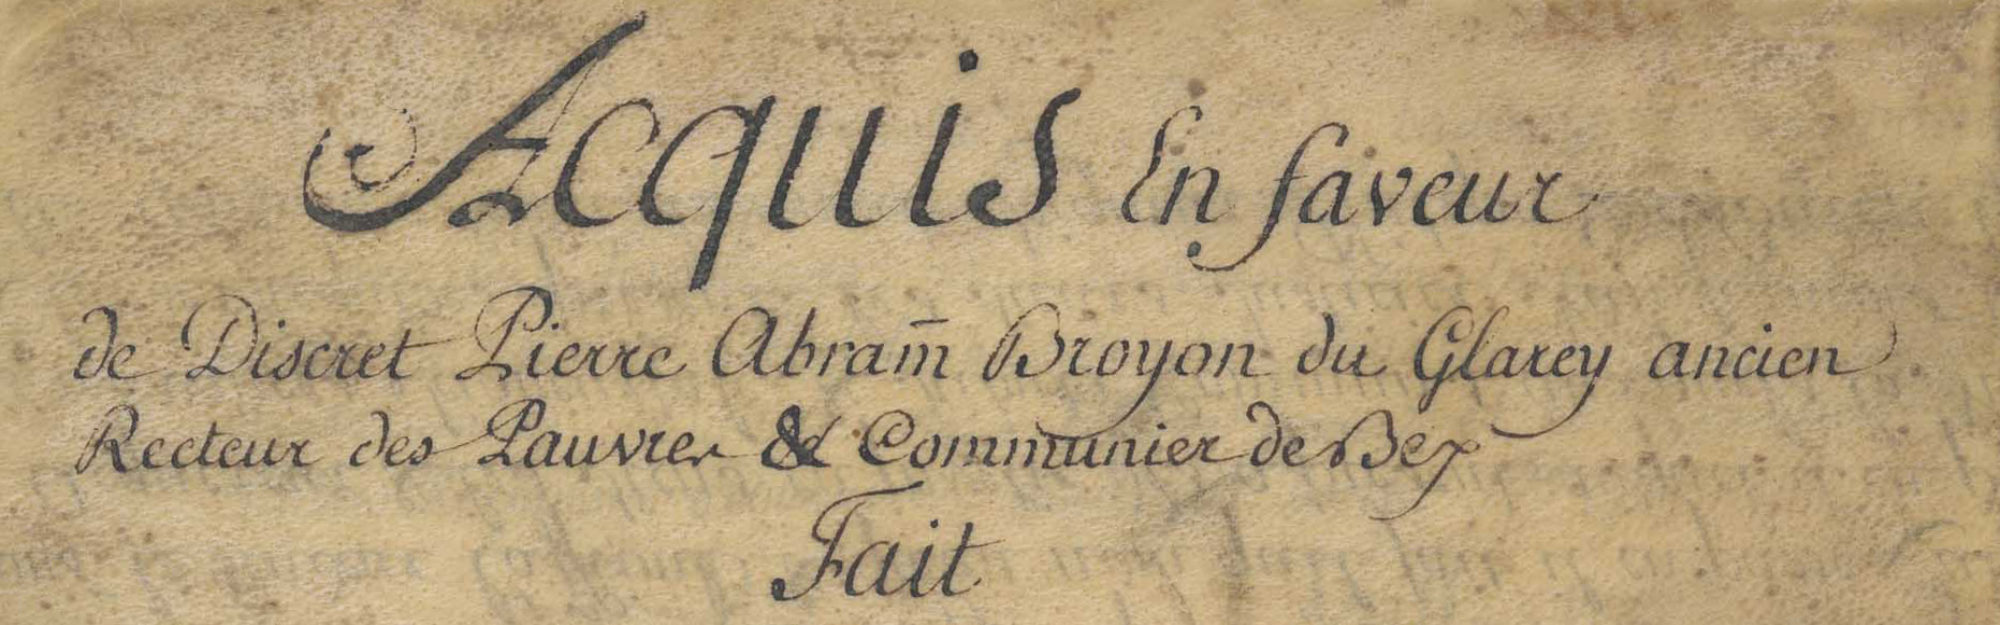 Acquis En faveur
de Discret Pierre Abram̄ Broyon du Glarey ancien
Recteur des Pauvres & Communier de Bex
Fait